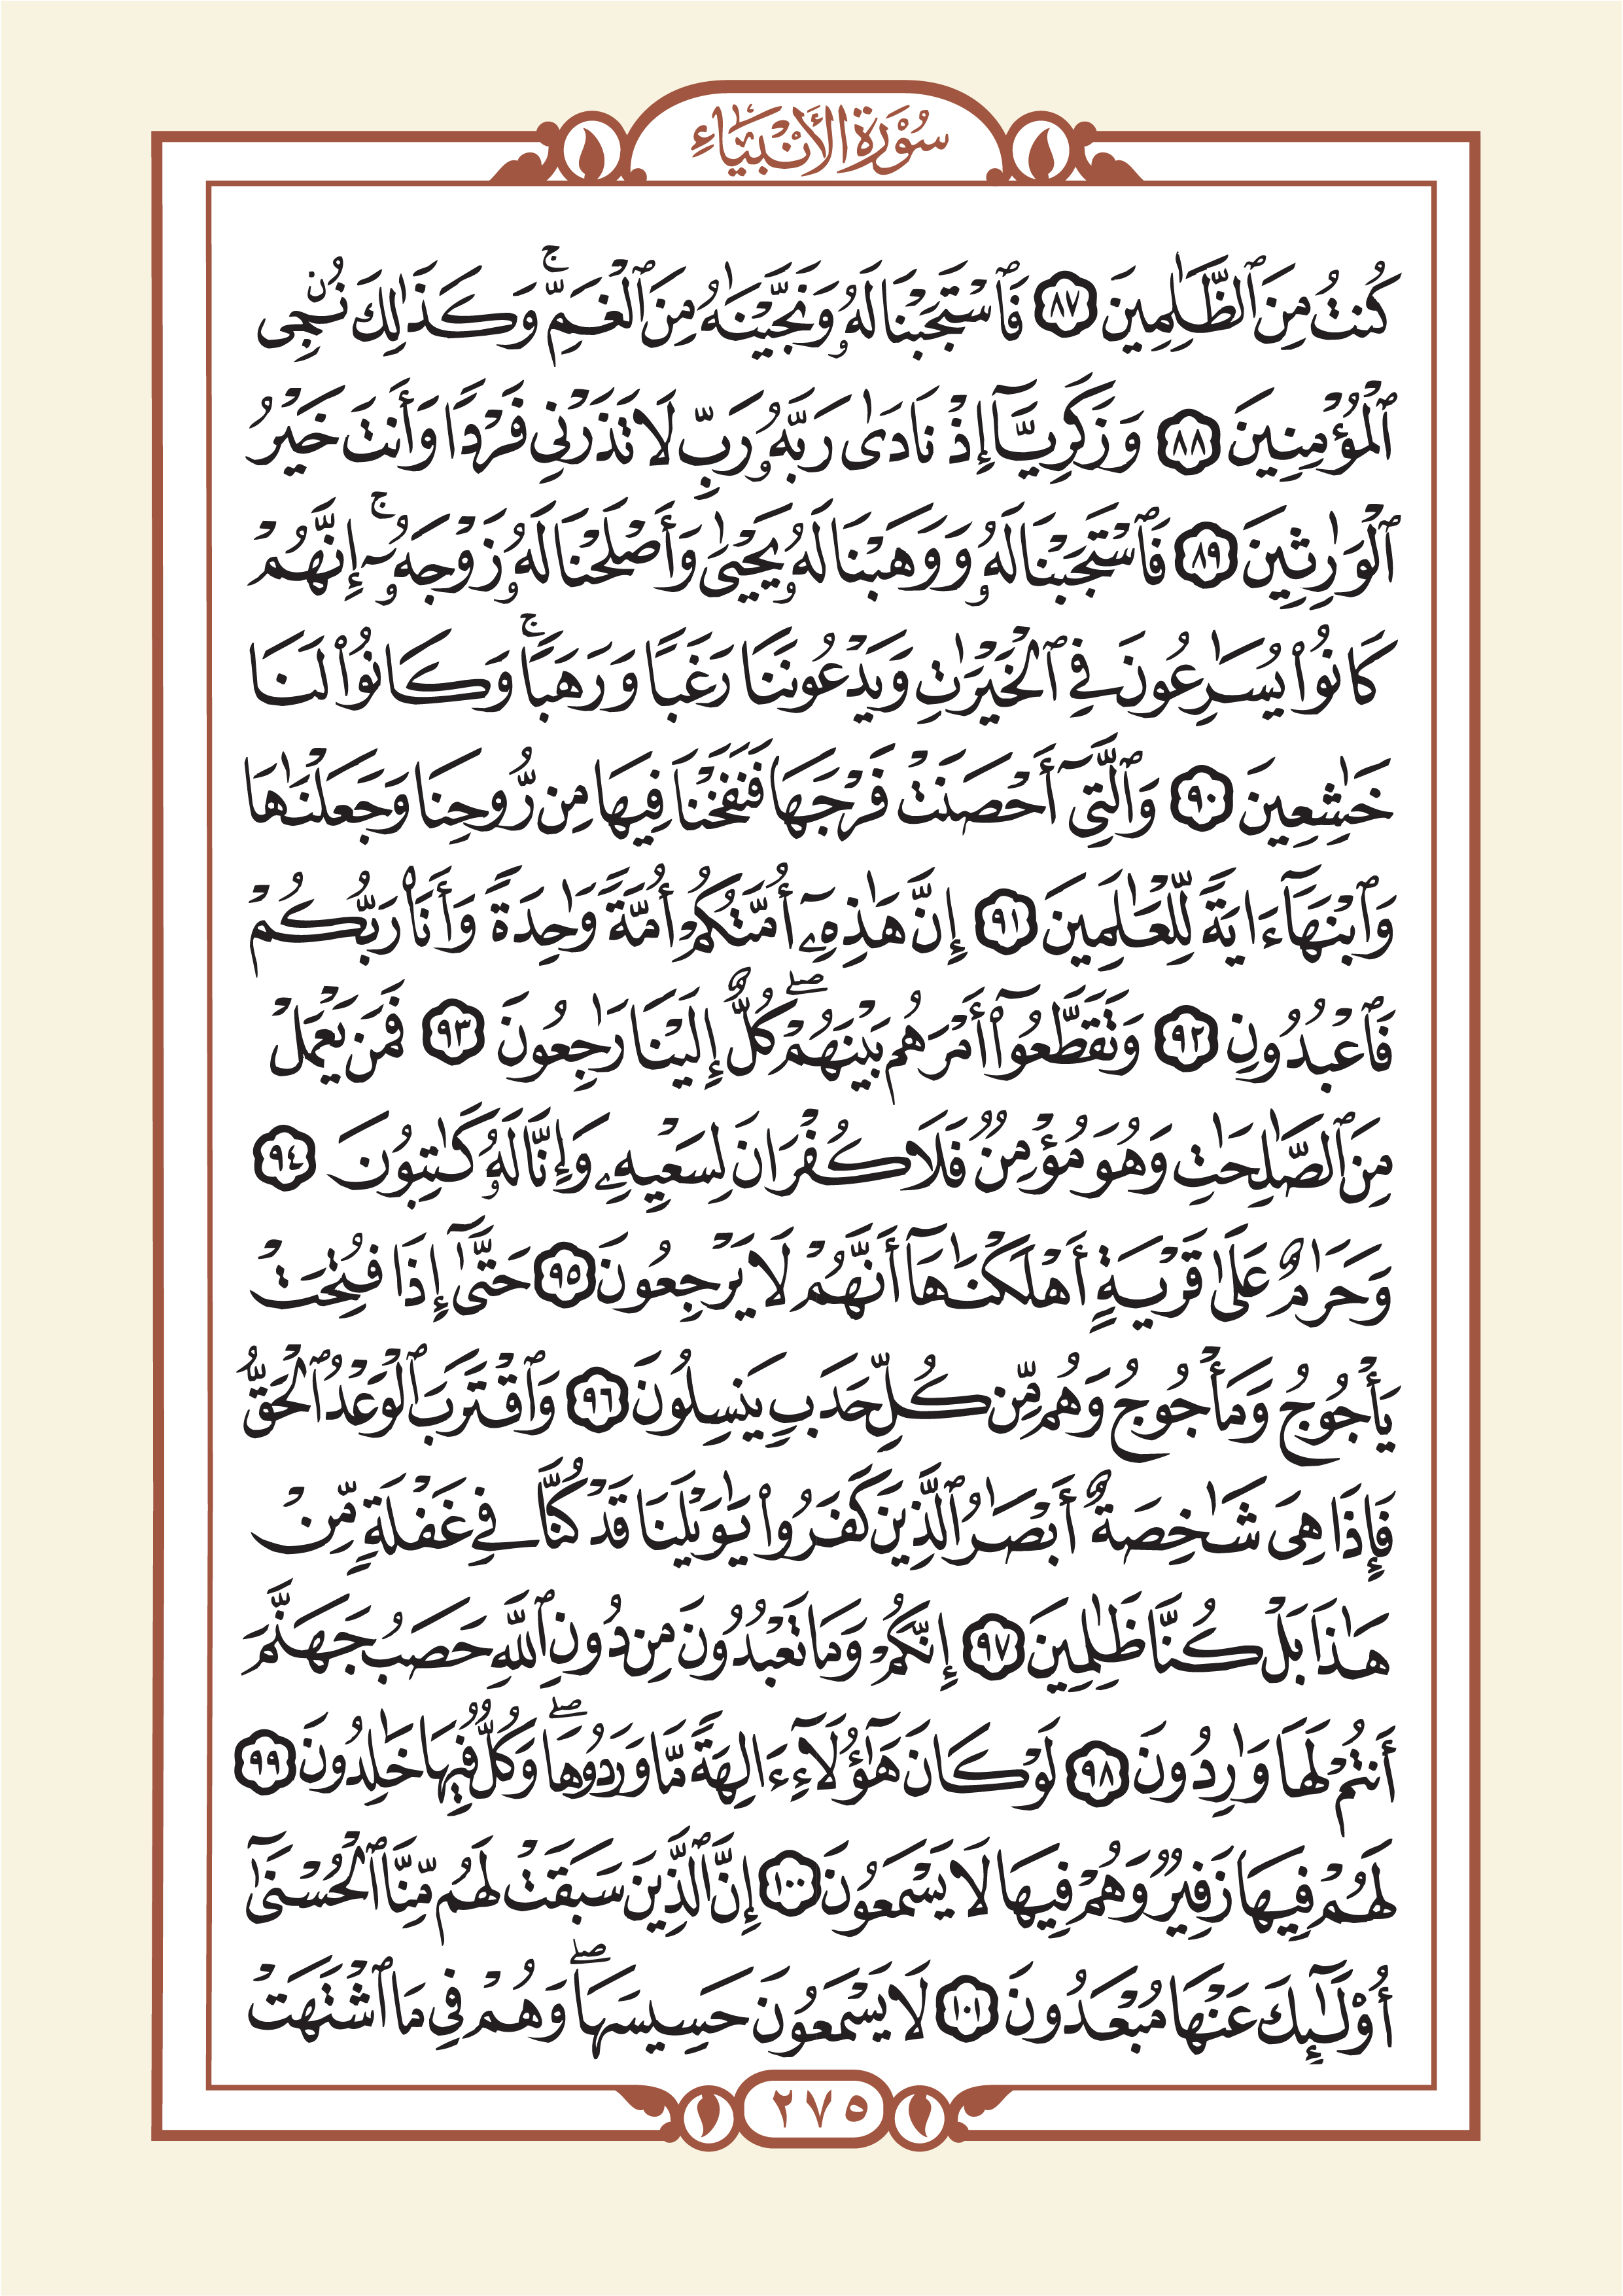 سُوْرَةُ الأَنْبِيَاءِ
كُنتُ مِنَ ٱلظَّٰلِمِينَ ٨٧ فَٱسْتَجَبْنَا لَهُۥ وَنَجَّيْنَٰهُ مِنَ ٱلْغَمِّ ۚ وَكَذَٰلِكَ نُـۨجِى
ٱلْمُؤْمِنِينَ ٨٨ وَزَكَرِيَّآ إِذْ نَادَىٰ رَبَّهُۥ رَبِّ لَا تَذَرْنِى فَرْدًا وَأَنتَ خَيْرُ
ٱلْوَٰرِثِينَ ٨٩ فَٱسْتَجَبْنَا لَهُۥ وَوَهَبْنَا لَهُۥ يَحْيَىٰ وَأَصْلَحْنَا لَهُۥ زَوْجَهُۥٓ ۚ إِنَّهُمْ
كَانُوا۟ يُسَٰرِعُونَ فِى ٱلْخَيْرَٰتِ وَيَدْعُونَنَا رَغَبًا وَرَهَبًا ۚ وَكَانُوا۟ لَنَا
خَٰشِعِينَ ٩٠ وَٱلَّتِىٓ أَحْصَنَتْ فَرْجَهَا فَنَفَخْنَا فِيهَا مِن رُّوحِنَا وَجَعَلْنَٰهَا
وَٱبْنَهَآ ءَايَةً لِّلْعَٰلَمِينَ ٩١ إِنَّ هَٰذِهِۦٓ أُمَّتُكُمْ أُمَّةً وَٰحِدَةً وَأَنَا۠ رَبُّكُمْ
فَٱعْبُدُونِ ٩٢ وَتَقَطَّعُوٓا۟ أَمْرَهُم بَيْنَهُمْ ۖ كُلٌّ إِلَيْنَا رَٰجِعُونَ ٩٣ فَمَن يَعْمَلْ
مِنَ ٱلصَّٰلِحَٰتِ وَهُوَ مُؤْمِنٌ فَلَا كُفْرَانَ لِسَعْيِهِۦ وَإِنَّا لَهُۥ كَٰتِبُونَ ٩٤
وَحَرَٰمٌ عَلَىٰ قَرْيَةٍ أَهْلَكْنَٰهَآ أَنَّهُمْ لَا يَرْجِعُونَ ٩٥ حَتَّىٰٓ إِذَا فُتِحَتْ
يَأْجُوجُ وَمَأْجُوجُ وَهُم مِّن كُلِّ حَدَبٍ يَنسِلُونَ ٩٦ وَٱقْتَرَبَ ٱلْوَعْدُ ٱلْحَقُّ
فَإِذَا هِىَ شَٰخِصَةٌ أَبْصَٰرُ ٱلَّذِينَ كَفَرُوا۟ يَٰوَيْلَنَا قَدْ كُنَّا فِى غَفْلَةٍ مِّنْ
هَٰذَا بَلْ كُنَّا ظَٰلِمِينَ ٩٧ إِنَّكُمْ وَمَا تَعْبُدُونَ مِن دُونِ ٱللَّهِ حَصَبُ جَهَنَّمَ
أَنتُمْ لَهَا وَٰرِدُونَ ٩٨ لَوْ كَانَ هَٰٓؤُلَآءِ ءَالِهَةً مَّا وَرَدُوهَا ۖ وَكُلٌّ فِيهَا خَٰلِدُونَ ٩٩
لَهُمْ فِيهَا زَفِيرٌ وَهُمْ فِيهَا لَا يَسْمَعُونَ ١٠٠ إِنَّ ٱلَّذِينَ سَبَقَتْ لَهُم مِّنَّا ٱلْحُسْنَىٰٓ
أُو۟لَٰٓئِكَ عَنْهَا مُبْعَدُونَ ١٠١ لَا يَسْمَعُونَ حَسِيسَهَا ۖ وَهُمْ فِى مَا ٱشْتَهَتْ
٢٧٥